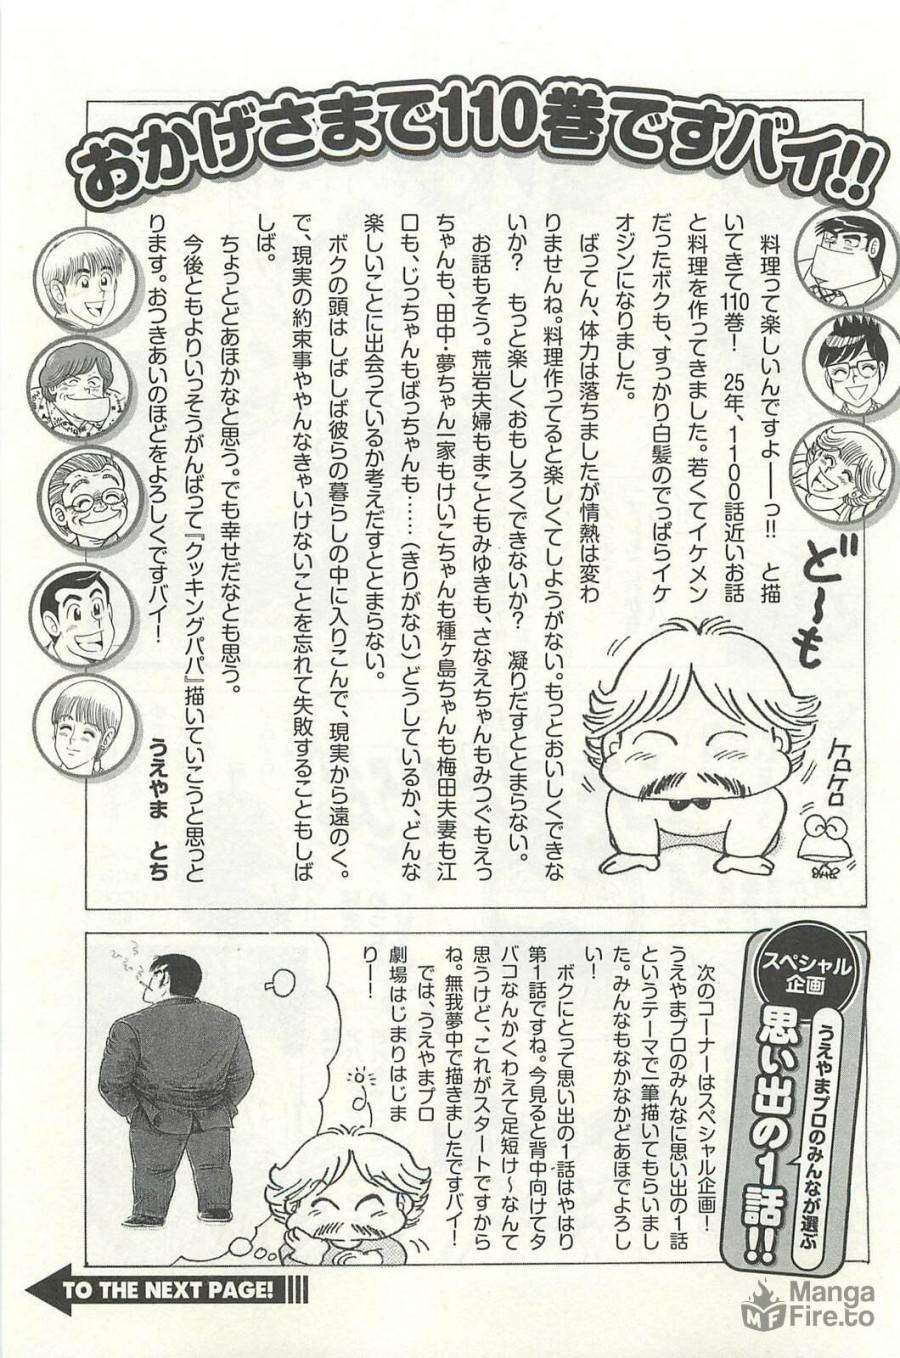 おかげさまで110巻ですバイ!!
料理って楽しいんですよ――っ!! と描
いてきて110巻! 25年、1100話近いお話
と料理を作ってきました。若くてイケメン
だったボクも、すっかり白髪のでっぱらイケ
オジンになりました。
ばってん、体力は落ちましたが情熱は変わ
りませんね。料理作ってると楽しくてしようがない。もっとおいしくできな
いか? もっと楽しくおもしろくできないか? 凝りだすととまらない。
お話もそう。荒岩夫婦もまこともみゆきも、さなえちゃんもみつぐもえう
ちゃんも、田中・夢ちゃん一家もけいこちゃんも種ヶ島ちゃんも梅田夫妻も江
口も、じっちゃんもばっちゃんも……(きりがない)どうしているか、どんな
楽しいことに出会っているか考えだすととまらない。
ボクの頭はしばしば彼らの暮らしの中に入りこんで、現実から遠のく。
で、現実の約束事ややんなきゃいけないことを忘れて失敗することもしば
しば。
ちょっとどあほかなと思う。でも幸せだなとも思う。
今後ともよりいっそうがんばって『クッキングパパ』描いていこうと思っと
ります。おつきあいのほどをよろしくですバイ!
うえやま とち
ど〜も
ケロケロ
スペシャル
企画
うえやまプロのみんなが選ぶ
思い出の1話!!
次のコーナーはスペシャル企画!
うえやまプロのみんなに思い出の1話
というテーマで一筆描いてもらいまし
た。みんなもなかなかどあほでよろし
い!
ボクにとって思い出の1話はやはり
第1話ですね。今見ると背中向けてタ
バコなんかくわえて足短け〜なんて
思うけど、これがスタートですから
ね。無我夢中で描きましたですバイ!
では、うえやまプロ
劇場はじまりはじま
り!
TO THE NEXT PAGE!
Manga
Fire.to
MF